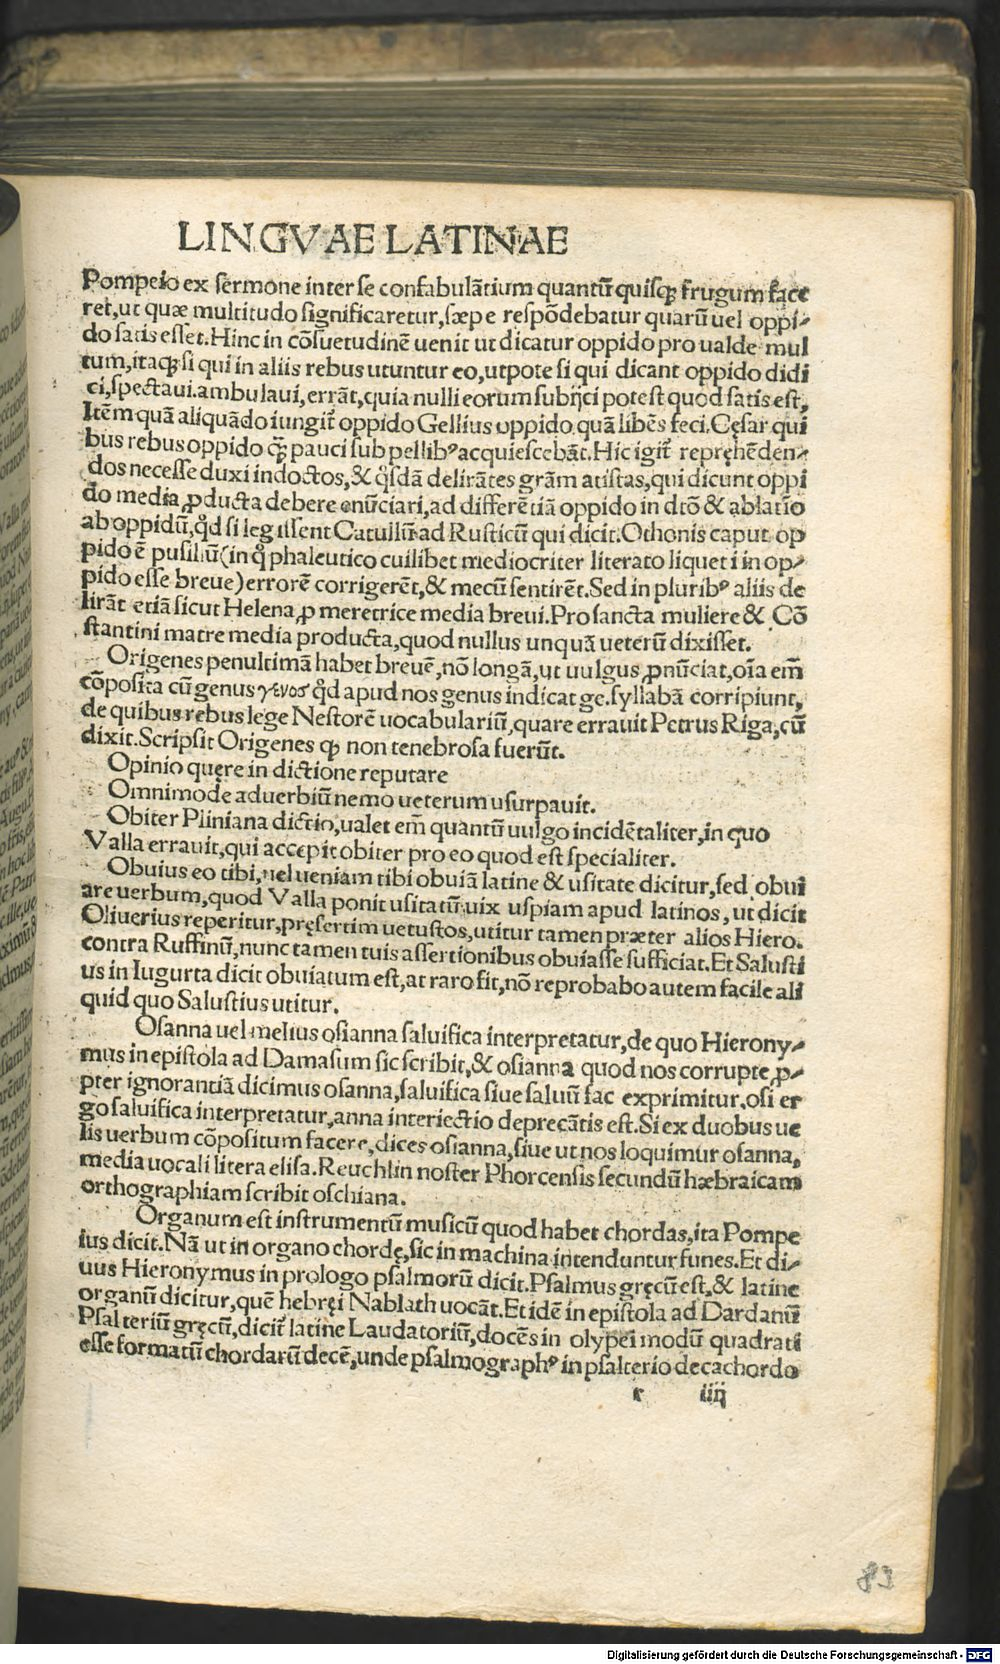 LINGVAE LATINAE
Pompeio ex sermone inter se confabulātium quantū quisqꝫ frugum face
ret, ut quæ multitudo significaretur, sæpe respōdebatur quarū uel oppi-
do satis esset. Hinc in cōsuetudinē uenit ut dicatur oppido pro ualde mul
tum, itaqꝫ si qui in aliis rebus utuntur eo, utpote si qui dicant oppido didi
ci, spectaui. ambulaui, errāt, quia nulli eorum subijci potest quod satis est,
Itēm quā aliquādo iungit᷑ oppido Gellius oppido quā libēs feci. Cęsar qui
bus rebus oppido qꝫ̄ pauci sub pellibꝰ acquiescebāt. Hic igit᷑ repręhēden-
dos necesse duxi indoctos, & q̊sdā delirātes grām atistas, qui dicunt oppi
do media ꝓducta debere enūciari, ad differētiā oppido in dtō & ablatīo
ab oppidū, q̊d si legissent Catullū ad Rusticū qui dicit. Othonis caput op
pido ē pusillū (in q̊ phaleutico cuilibet mediocriter literato liquet i in op-
pido esse breue) errorē corrigerēt, & mecū sentirēt. Sed in pluribꝰ aliis de
lirāt etiā sicut Helena ꝓ meretrice media breui. Pro sancta muliere & Cō
stantini matre media producta, quod nullus unquā ueterū dixisset.
Origenes penultimā habet breuē, nō longā, ut uulgus ꝓnūciat, oīa em̄
cōposita cū genus γενος q̊d apud nos genus indicat ge. syllabā corripiunt,
de quibus rebus lege Nestorē uocabulariū, quare errauit Petrus Riga, cū
dixit. Scripsit Origenes qꝫ non tenebrosa fuerūt.
Opinio quęre in dictione reputare
Omnimode aduerbiū nemo ueterum usurpauit.
Obiter Pliniana dictio, ualet em̄ quantū uulgo incidētaliter, in quo
Valla errauit, qui accepit obiter pro eo quod est specialiter.
Obuius eo tibi, uel ueniam tibi obuiā latine & usitate dicitur, sed obui
are uerbum, quod Valla ponit usitatū uix uspiam apud latinos, ut dicit
Oliuerius reperitur, pręsertim uetustos, utitur tamen præter alios Hiero.
contra Ruffinū, nunc tamen tuis assertionibus obuiasse sufficiat. Et Salusti
us in Iugurta dicit obuiatum est, at raro fit, nō reprobabo autem facile ali
quid quo Salustius utitur.
Osanna uel melius osianna saluifica interpretatur, de quo Hierony-
mus in epistola ad Damasum sic scribit, & osianna quod nos corrupte ꝓ-
pter ignorantiā dicimus osanna, saluifica siue saluū fac exprimitur. osi er
go saluifica interpretatur, anna interiectio deprecātis est. Si ex duobus ue
lis uerbum cōpositum facere, dices osianna, siue ut nos loquimur osanna,
media uocali litera elisa. Reuchlin noster Phorcensis secundū hæbraicam
orthographiam scribit oschiana.
Organum est instrumentū musicū quod habet chordas, ita Pompe
ius dicit. Nā ut in organo chordę, sic in machina intenduntur funes. Et di-
uus Hieronymus in prologo psalmorū dicit. Psalmus gręcū est, & latine
organū dicitur, quē hebręi Nablath uocāt. Et idē in epistola ad Dardanū
Psalteriū gręcū, dicit᷑ latine Laudatoriū, docēs in olypei modū quadrati
esse formatū chordarū decē, unde psalmographꝰ in psalterio decachordo
r iiij
83
Digitalisierung gefördert durch die Deutsche Forschungsgemeinschaft - DFG